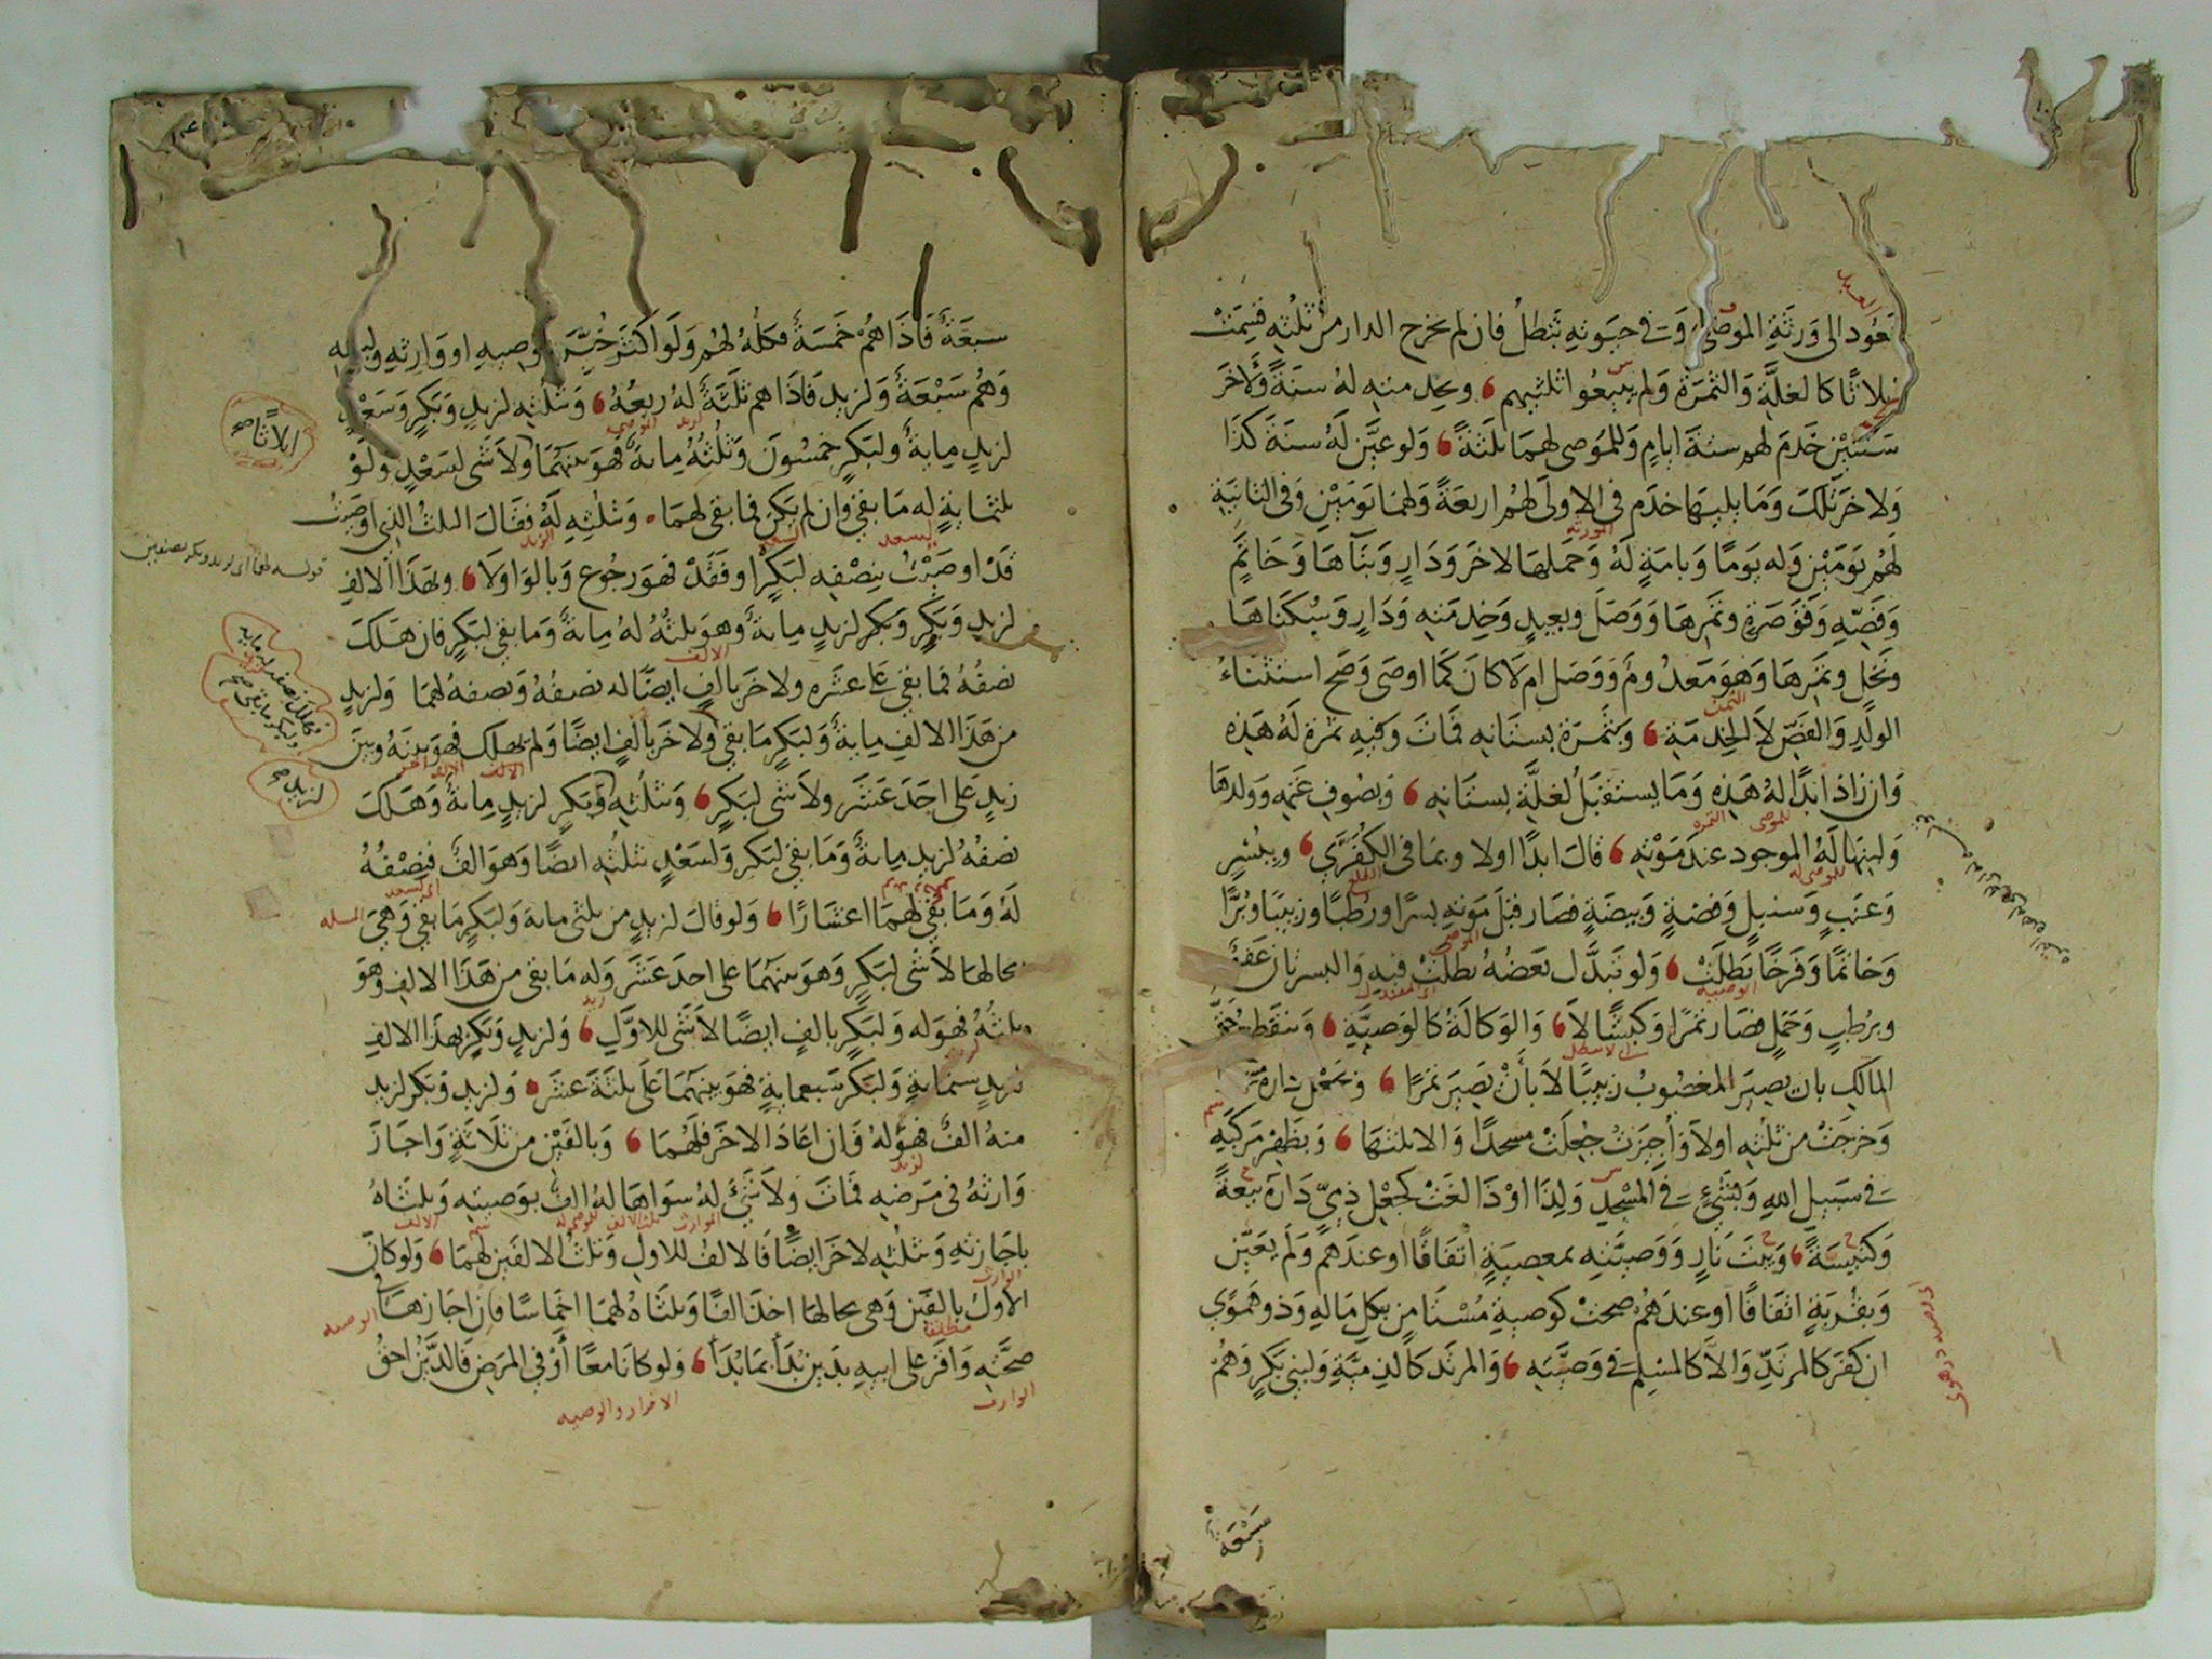 تعود الى ورثة الموصى وفى حيوته تبطل فان لم يخرج الدار من ثلثه قسمت
اثلاثا كالغلة والثمرة ولم يبيعوا ثلثيهم وبخدمته له سنة ولاخر
سنتين خدم لهم ستة ايام وللموصى لهما ثلثة ولو عين له سنة كذا
ولاخر تلك وما يليها خدم فى الاولى لهم اربعة ولهما يومين وفى الثانية
لهم يومين وله يوما وبامة له وحملها لاخر ودار وبنآها وخاتم
وفصه وقوصرة وثمرها ووصل وبعبد وخدمته ودار وسكناها
ونخل وثمرها وهو معدوم ووصل ام لا كان كما اوصى وصح استثناء
الولد والفص لا الخدمة وبثمرة بستانه فمات وفيه ثمرة له هذه
وان زاد ابدا له هذه وما يستقبل لغلة بستانه وبصوف غنمه وولدها
ولبنها له الموجود عند موته قال ابدا اولا وبما فى الكفرى وببسر
وعنب وسنبل وفضة وبيضة فصار قبل موته بسرا ورطبا وزبيبا وبرا
وخاتما وفرخا بطلت ولو تبدل بعضه بطلت فيه والبسر بان
وبرطب وحمل فصار تمرا وكبشا لا والوكالة كالوصية وينقطع حق
المالك بان يصير المغصوب زبيبا لا بأن يصير تمرا وبجعل داره
وخرجت من ثلثه اولا وأجيزت جعلت مسجدا والا ثلثها وبظهر مركبه
فى سبيل الله وبشئ فى المسجد ولذا اوذا لغت كجعل ذمى داره بيعة
وكنيسة وبيت نار ووصيته بمعصية اتفاقا او عندهم ولم يعين
وبقربة اتفاقا او عندهم صحت كوصية مستامن بكل ماله وذو هوى
ان كفر كالمرتد والا كالمسلم فى وصيته والمرتدة كالذمية ولبنى بكر وهم
سبعة
سبعة فاذا هم خمسة فكله لهم ولو اكثر خير وصيه او وارثه ولبنيه
وهم سبعة ولزيد فاذا هم ثلثة له ربعه وبثلثه لزيد وبكر وسعد
لزيد مائة ولبكر خمسون وثلثه مائة فهو بينهما ولا شى لسعد ولو
ثلثمائة له ما بقى وان لم يكن فما بقى لهما وبثلثه له فقال الثلث الذى اوصيت
قد اوصيت بنصفه لبكر او فقد فهو رجوع وبالواو لا وبهذا الالف
لزيد وبكر وبكر لزيد مائة وهو ثلثه له مائة وما بقى لبكر فان هلك
نصفه فما بقى على عشره ولاخر بالف ايضا له نصفه ونصفه لهما ولزيد
من هذا الالف مائة ولبكر ما بقى ولاخر بالف ايضا ولم يهلك فهو بينه وبين
زيد على احد عشر ولا شى لبكر وبثلثه وبكر لزيد مائة وهلك
نصفه لزيد مائة وما بقى لبكر ولسعد بثلثه ايضا وهو الف فنصفه
له وما بقى لهما اعشارا ولو قال لزيد من ثلثى مائة ولبكر ما بقى وهى
بحالها لا شى لبكر وهو بينهما على احد عشر وله ما بقى من هذا الالف وهو
ثلثه فهو له ولبكر بالف ايضا لا شى للاول ولزيد وبكر بهذا الالف
لزيد ستمائة ولبكر سبعمائة فهو بينهما على ثلثة عشر ولزيد وبكر لزيد
منه الف فهو له وان اعاد الاخر فلهما وبالفين من ثلاثة واجاز
وارثه فى مرضه فمات ولا شئ له سواها له الف بوصيته وثلثاه
باجازته وبثلثه لاخر ايضا فالالف للاول وثلث الالفين لهما ولو كان
الاول بالفين وهى بحالها اخذ الفا وثلثاه لهما اخماسا فان اجازها فى
صحته واقر على ابيه بدين بدأ بما بدأ ولو كانا معا أو فى المرض فالدين احق
اثلاثا صح
قوله لهما اى لزيد وبكر نصفين
لزيد صح
الوارث
الاقرار والوصية